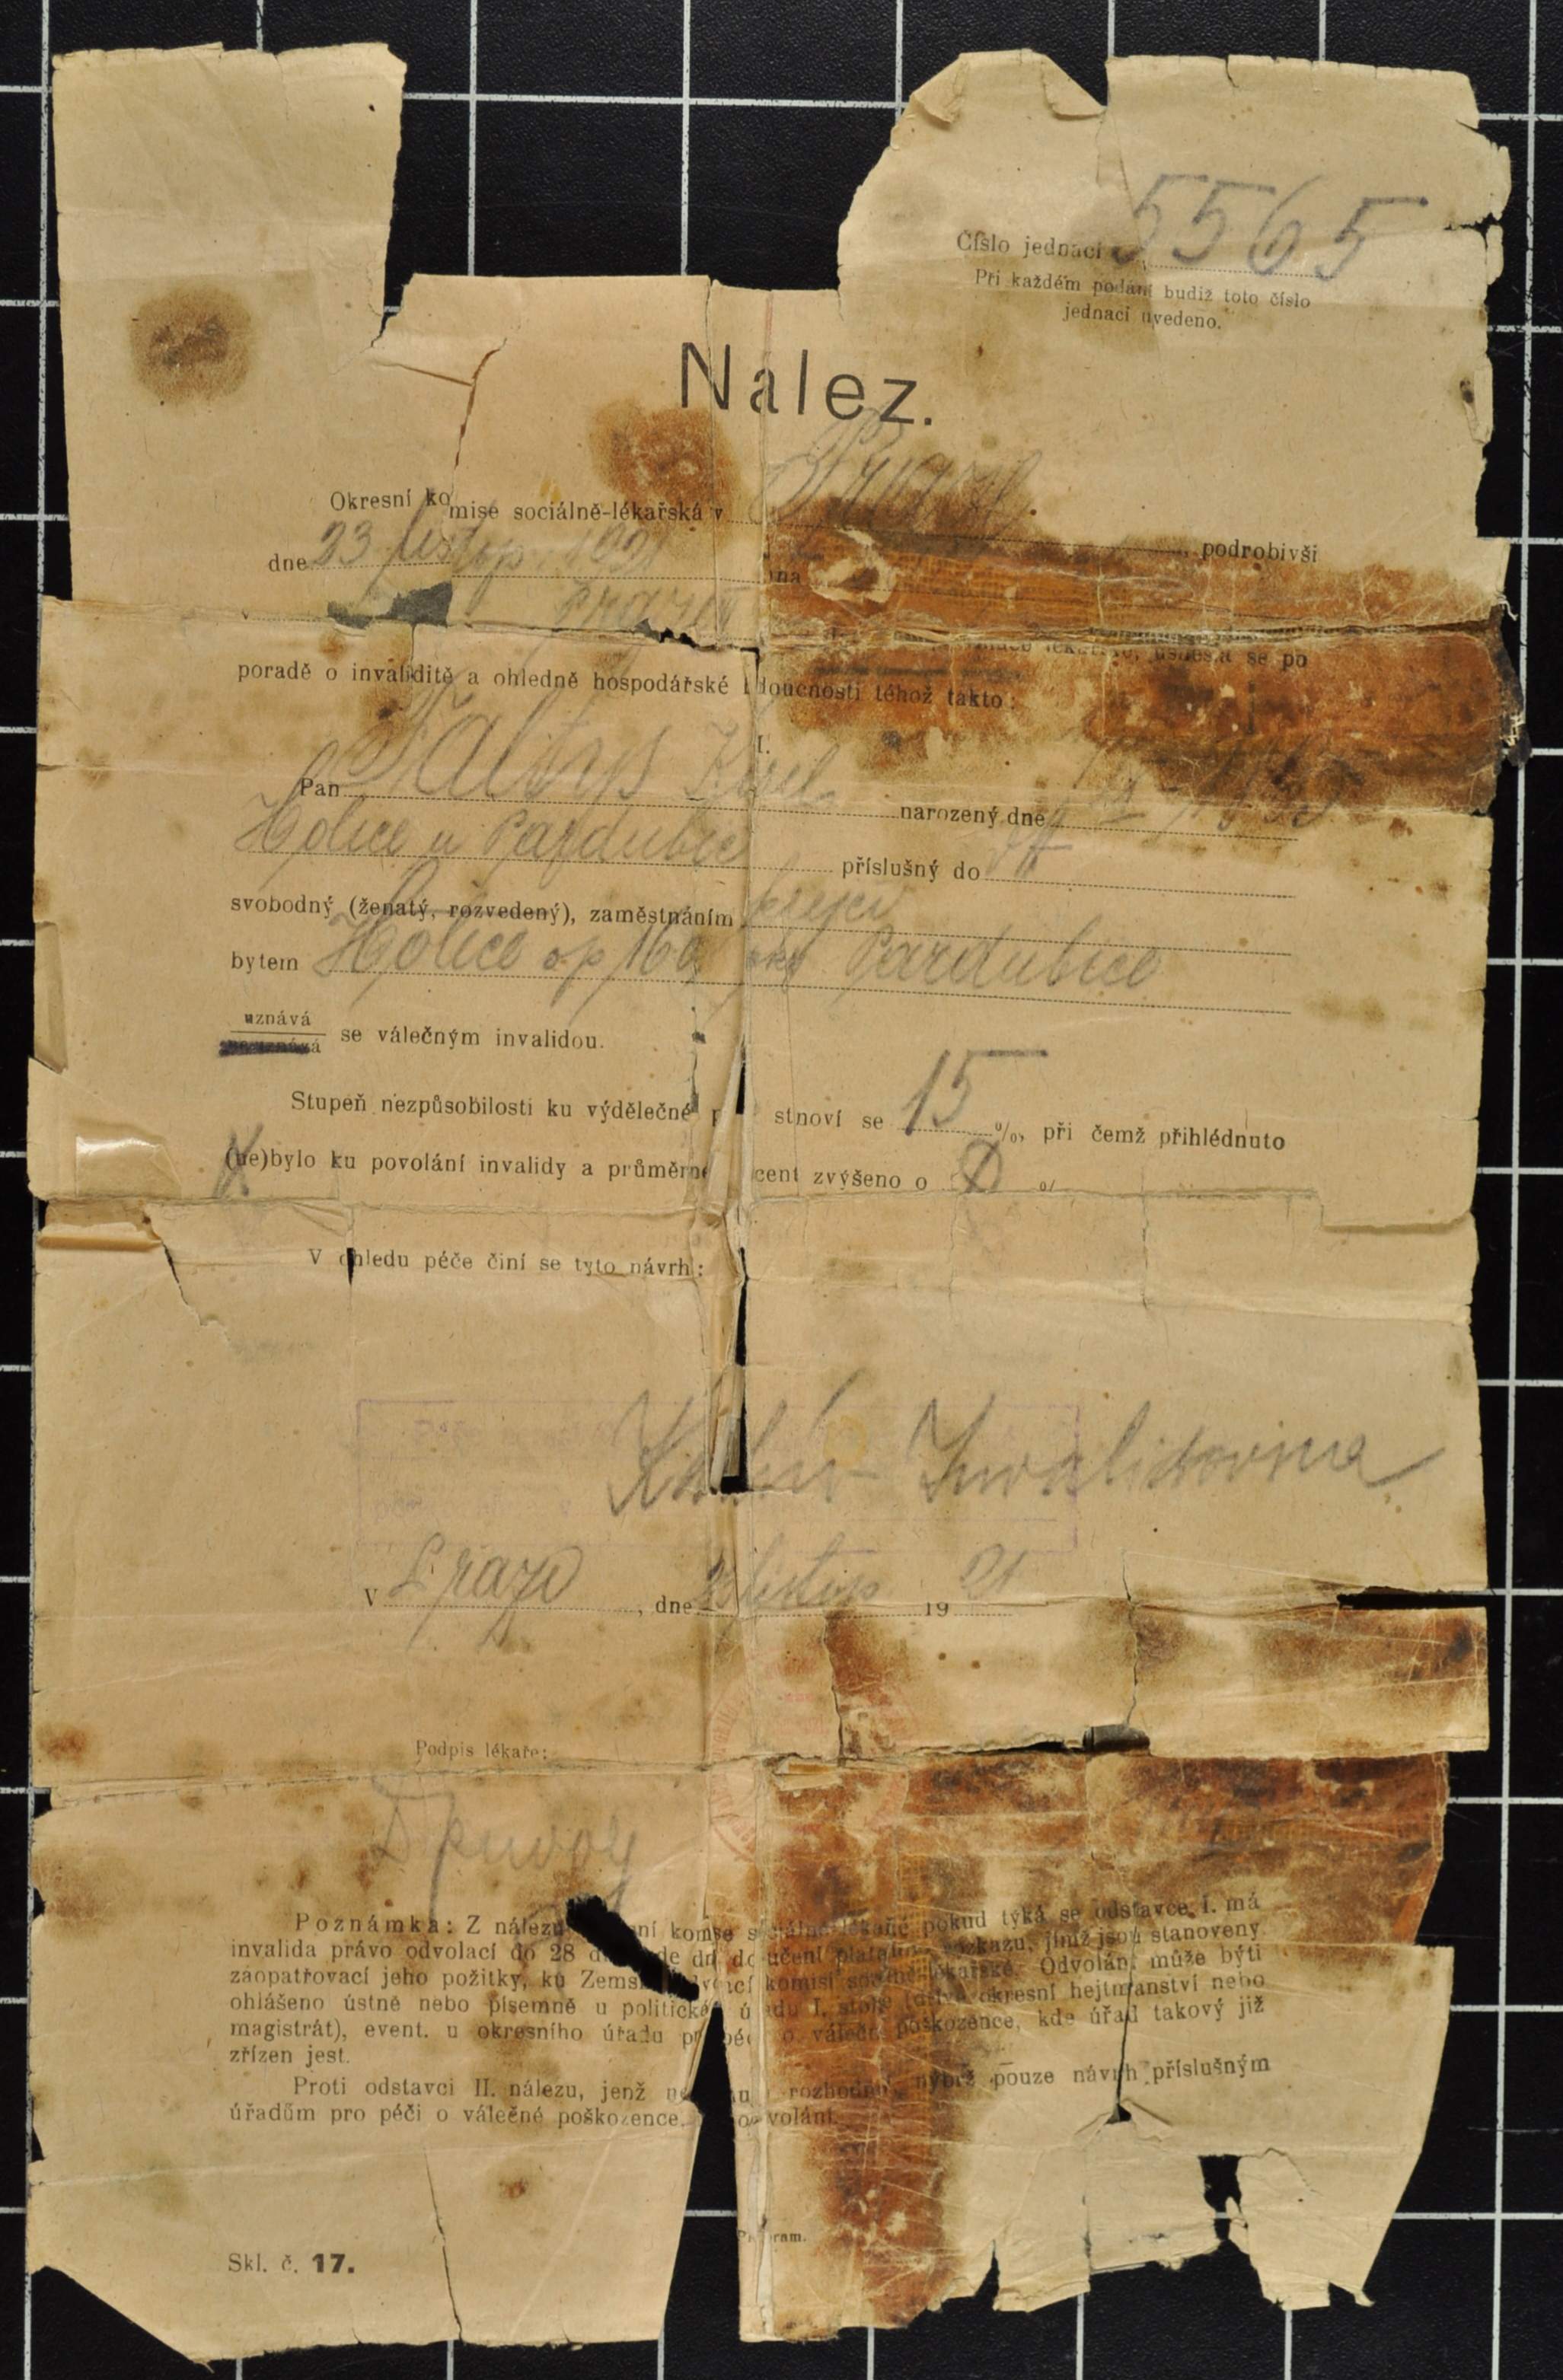 Číslo jednací 5565
Při každém podání budiž toto číslo
jednací uvedeno.
Nález.
Okresní komise sociálně-lékařská v Praze
dne 23 listop. 1921 podrobivši
Praze
lékařské, usnesla se po
poradě o invaliditě a ohledně hospodářské budoucnosti téhož takto:
I.
Pan Faltys Karel narozený dne
Holice u Pardubic příslušný do
svobodný (ženatý, rozvedený), zaměstnáním krejčí
bytem Holice čp 160, okr Pardubice
uznává
neuznává se válečným invalidou.
Stupeň nezpůsobilosti ku výdělečné p stnoví se 15 %, při čemž přihlédnuto
(ne)bylo ku povolání invalidy a průměrné cent zvýšeno o 0 %
V ohledu péče činí se tyto návrh:
Karlín Invalidovna
V Praze, dne 23 listop 1921
Podpis lékaře:
Poznámka: Z nálezu ní komise sociálně lékařské pokud týká se odstavce I. má
invalida právo odvolací do 28 d de dn doručení platebn rozkazu, jímž jsou stanoveny
zaopatřovací jeho požitky, ku Zemsk odvolací komisi sociálně lékařské. Odvolání může býti
ohlášeno ústně nebo písemně u politického úřadu I. stolic (dříve okresní hejtmanství nebo
magistrát), event. u okresního úřadu pro péči o válečné poškozence, kde úřad takový již
zřízen jest.
Proti odstavci II. nálezu, jenž ne rozhodnutí nýbrž pouze návrh příslušným
úřadům pro péči o válečné poškozence, odvolání.
Skl. č. 17.